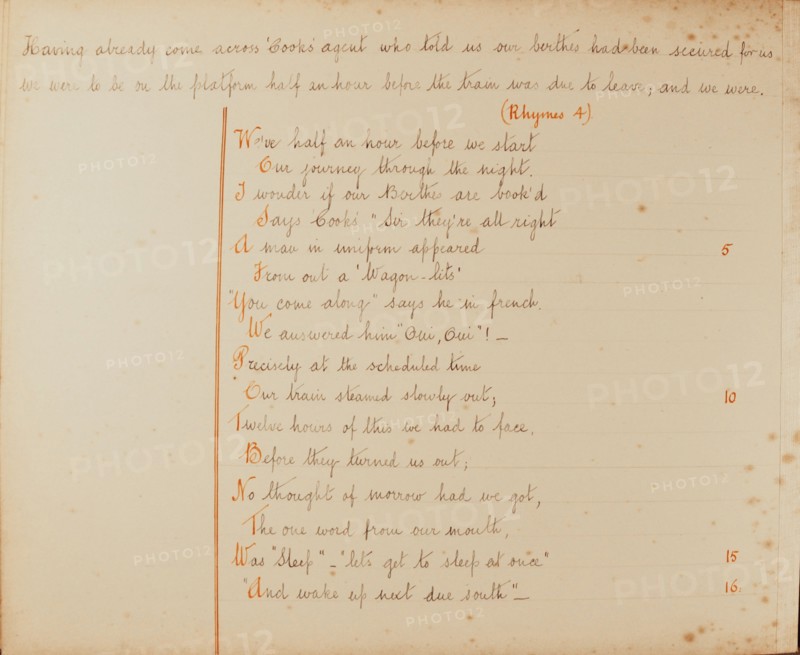 Having already come across 'Cooks' agent who told us our berthes had been secured for us
we were to be on the platform half an hour before the train was due to leave; and we were.
(Rhymes 4)
We've half an hour before we start
Our journey through the night.
I wonder if our Berthes are book'd
Says 'Cooks' "Sir they're all right
A man in uniform appeared 5
From out a 'Wagon-lits'
"You come along" says he in french.
We answered him "Oui, Oui"! —
Precisely at the scheduled time
Our train steamed slowly out; 10
Twelve hours of this we had to face,
Before they turned us out;
No thought of morrow had we got,
The one word from our mouth,
Was "Sleep" – "let's get to sleep at once" 15
"And wake up next due south" — 16.
PHOTO12